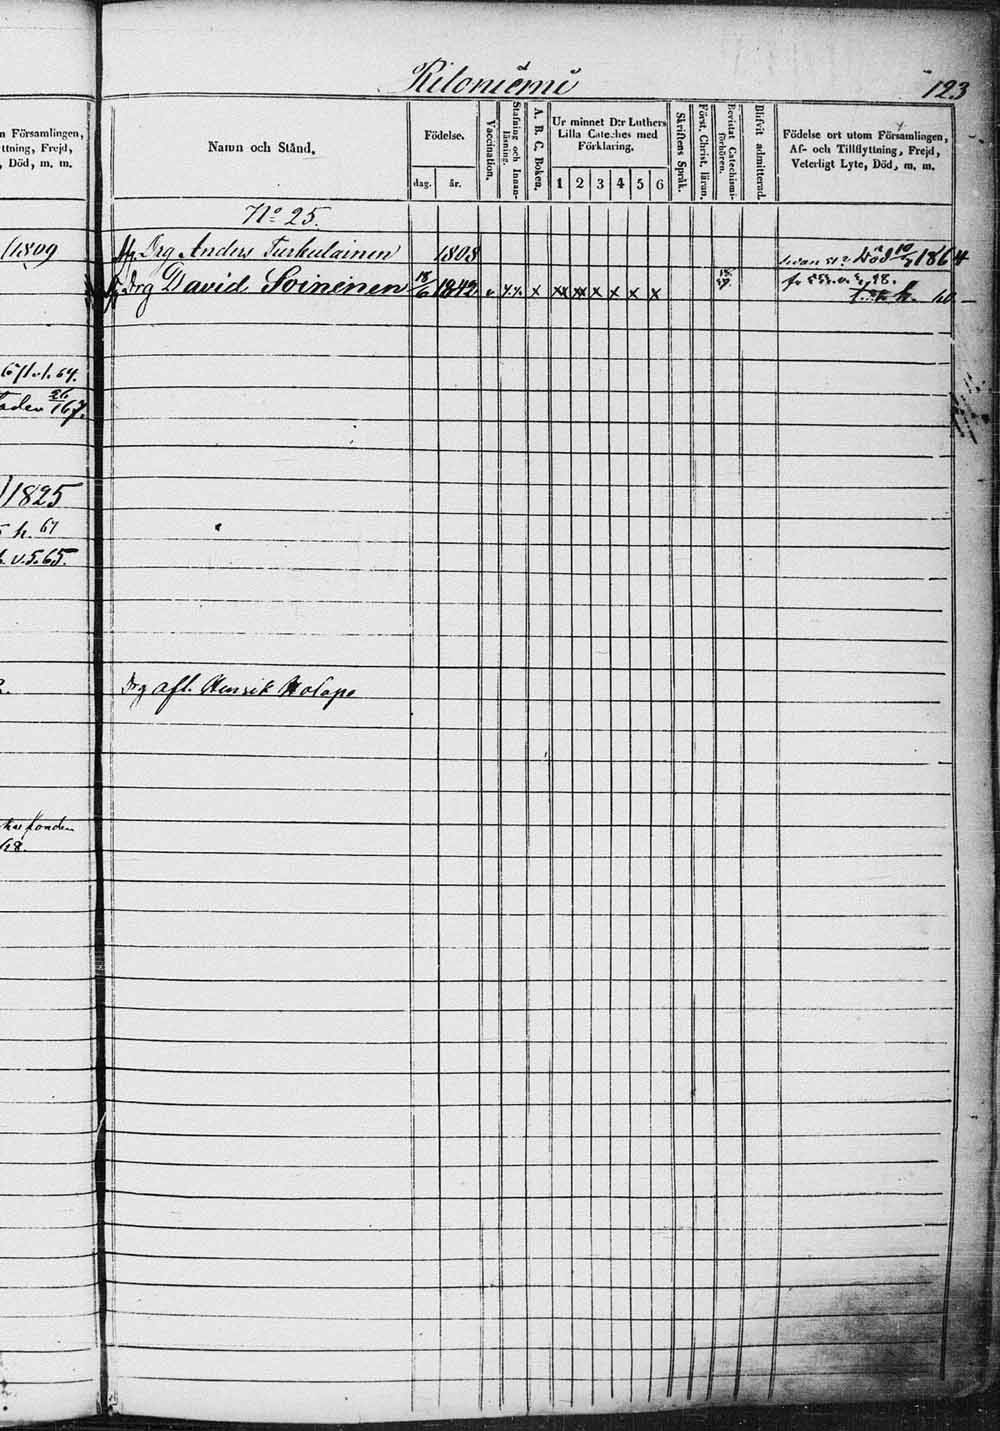 Kiloniemi
123
n Församlingen,
ttning, Frejd,
, Död, m. m.
Namn och Stånd.
Födelse.
dag. år.
Vaccination.
Stafning och Innan-läsning.
A. B. C. Boken.
Ur minnet D:r Luthers
Lilla Cateches med
Förklaring.
1 2 3 4 5 6
Skriftens Språk.
Först. Christ. läran.
Bevistat Catechismi-förhören.
Blifvit admitterad.
Födelse ort utom Församlingen,
Af- och Tillflyttning, Frejd,
Veterligt Lyte, Död, m. m.
No 25.
1809
Drg Anders Turkulainen 1808 Död 10/3 1864
Drg David Soininen 18/6 1842 v x x x xx xx x x x x h. 60
67 v. 64.
26/1 67.
1825
h. 67
v. 5. 65.
Drg afl. Henrik Holopa
68.